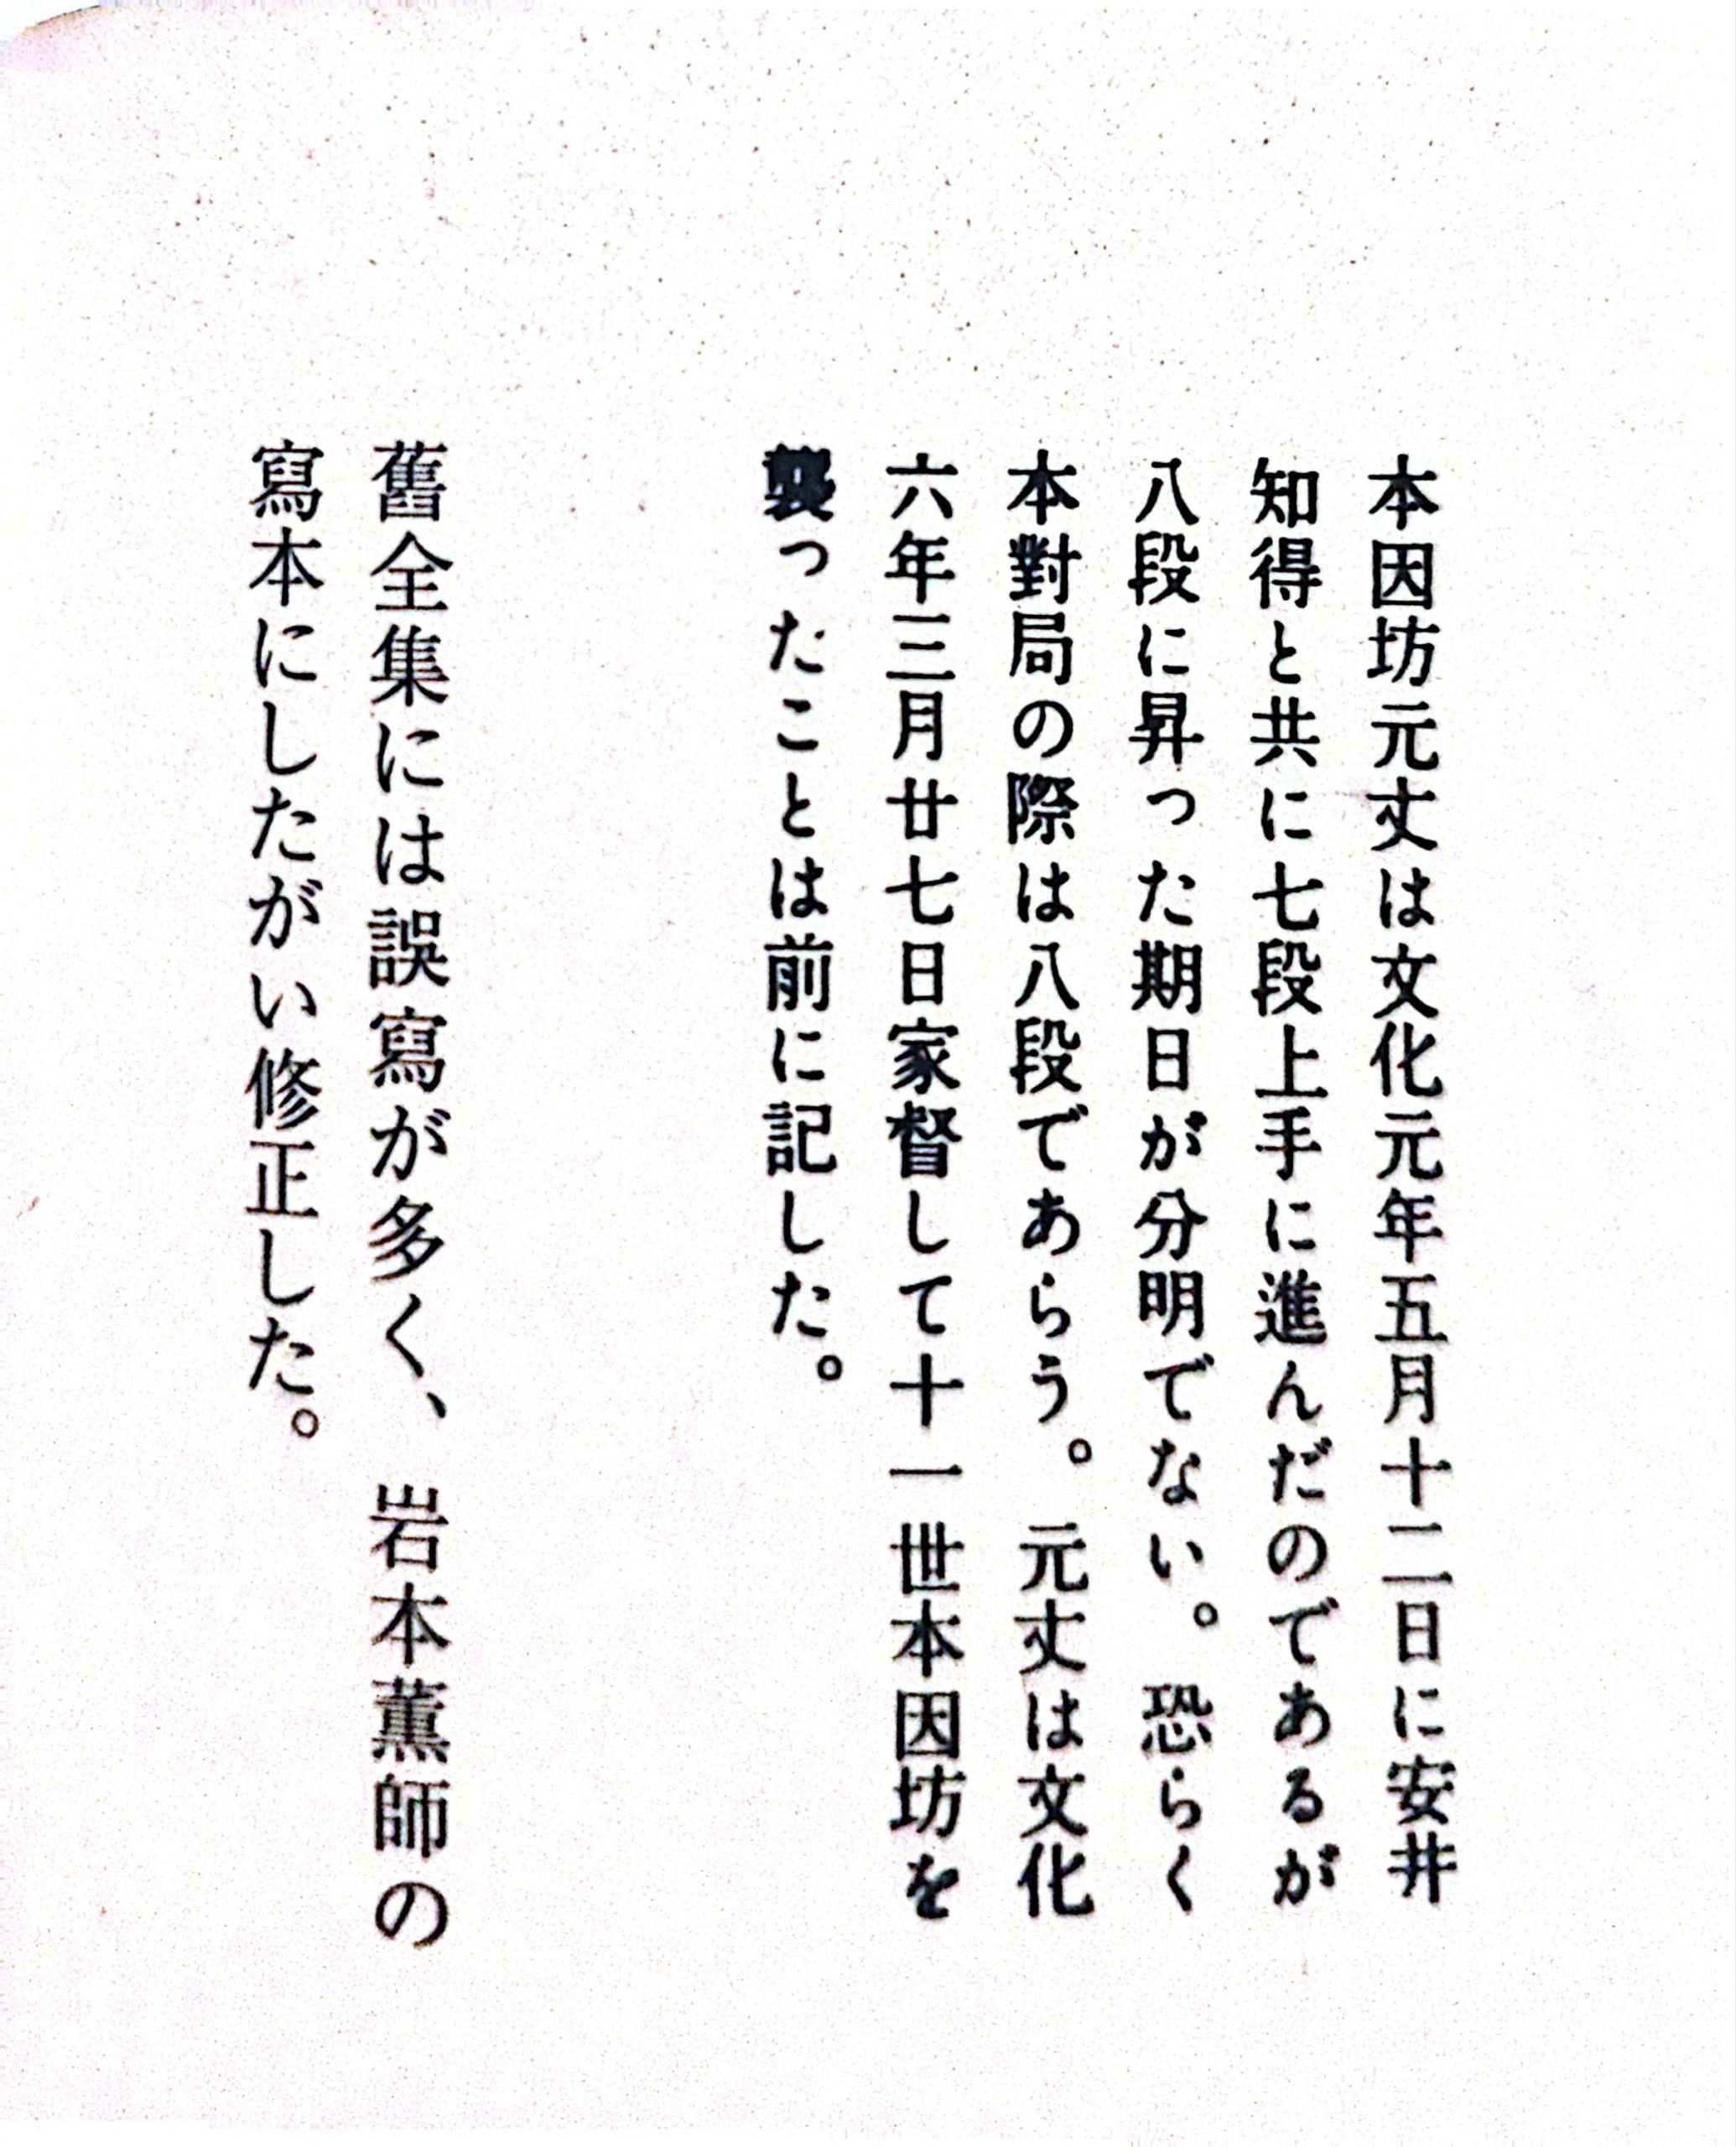 本因坊元丈は文化元年五月十二日に安井
知得と共に七段上手に進んだのであるが
八段に昇った期日が分明でない。恐らく
本對局の際は八段であらう。元丈は文化
六年三月廿七日家督して十一世本因坊を
襲ったことは前に記した。
舊全集には誤寫が多く、岩本薫師の
寫本にしたがい修正した。